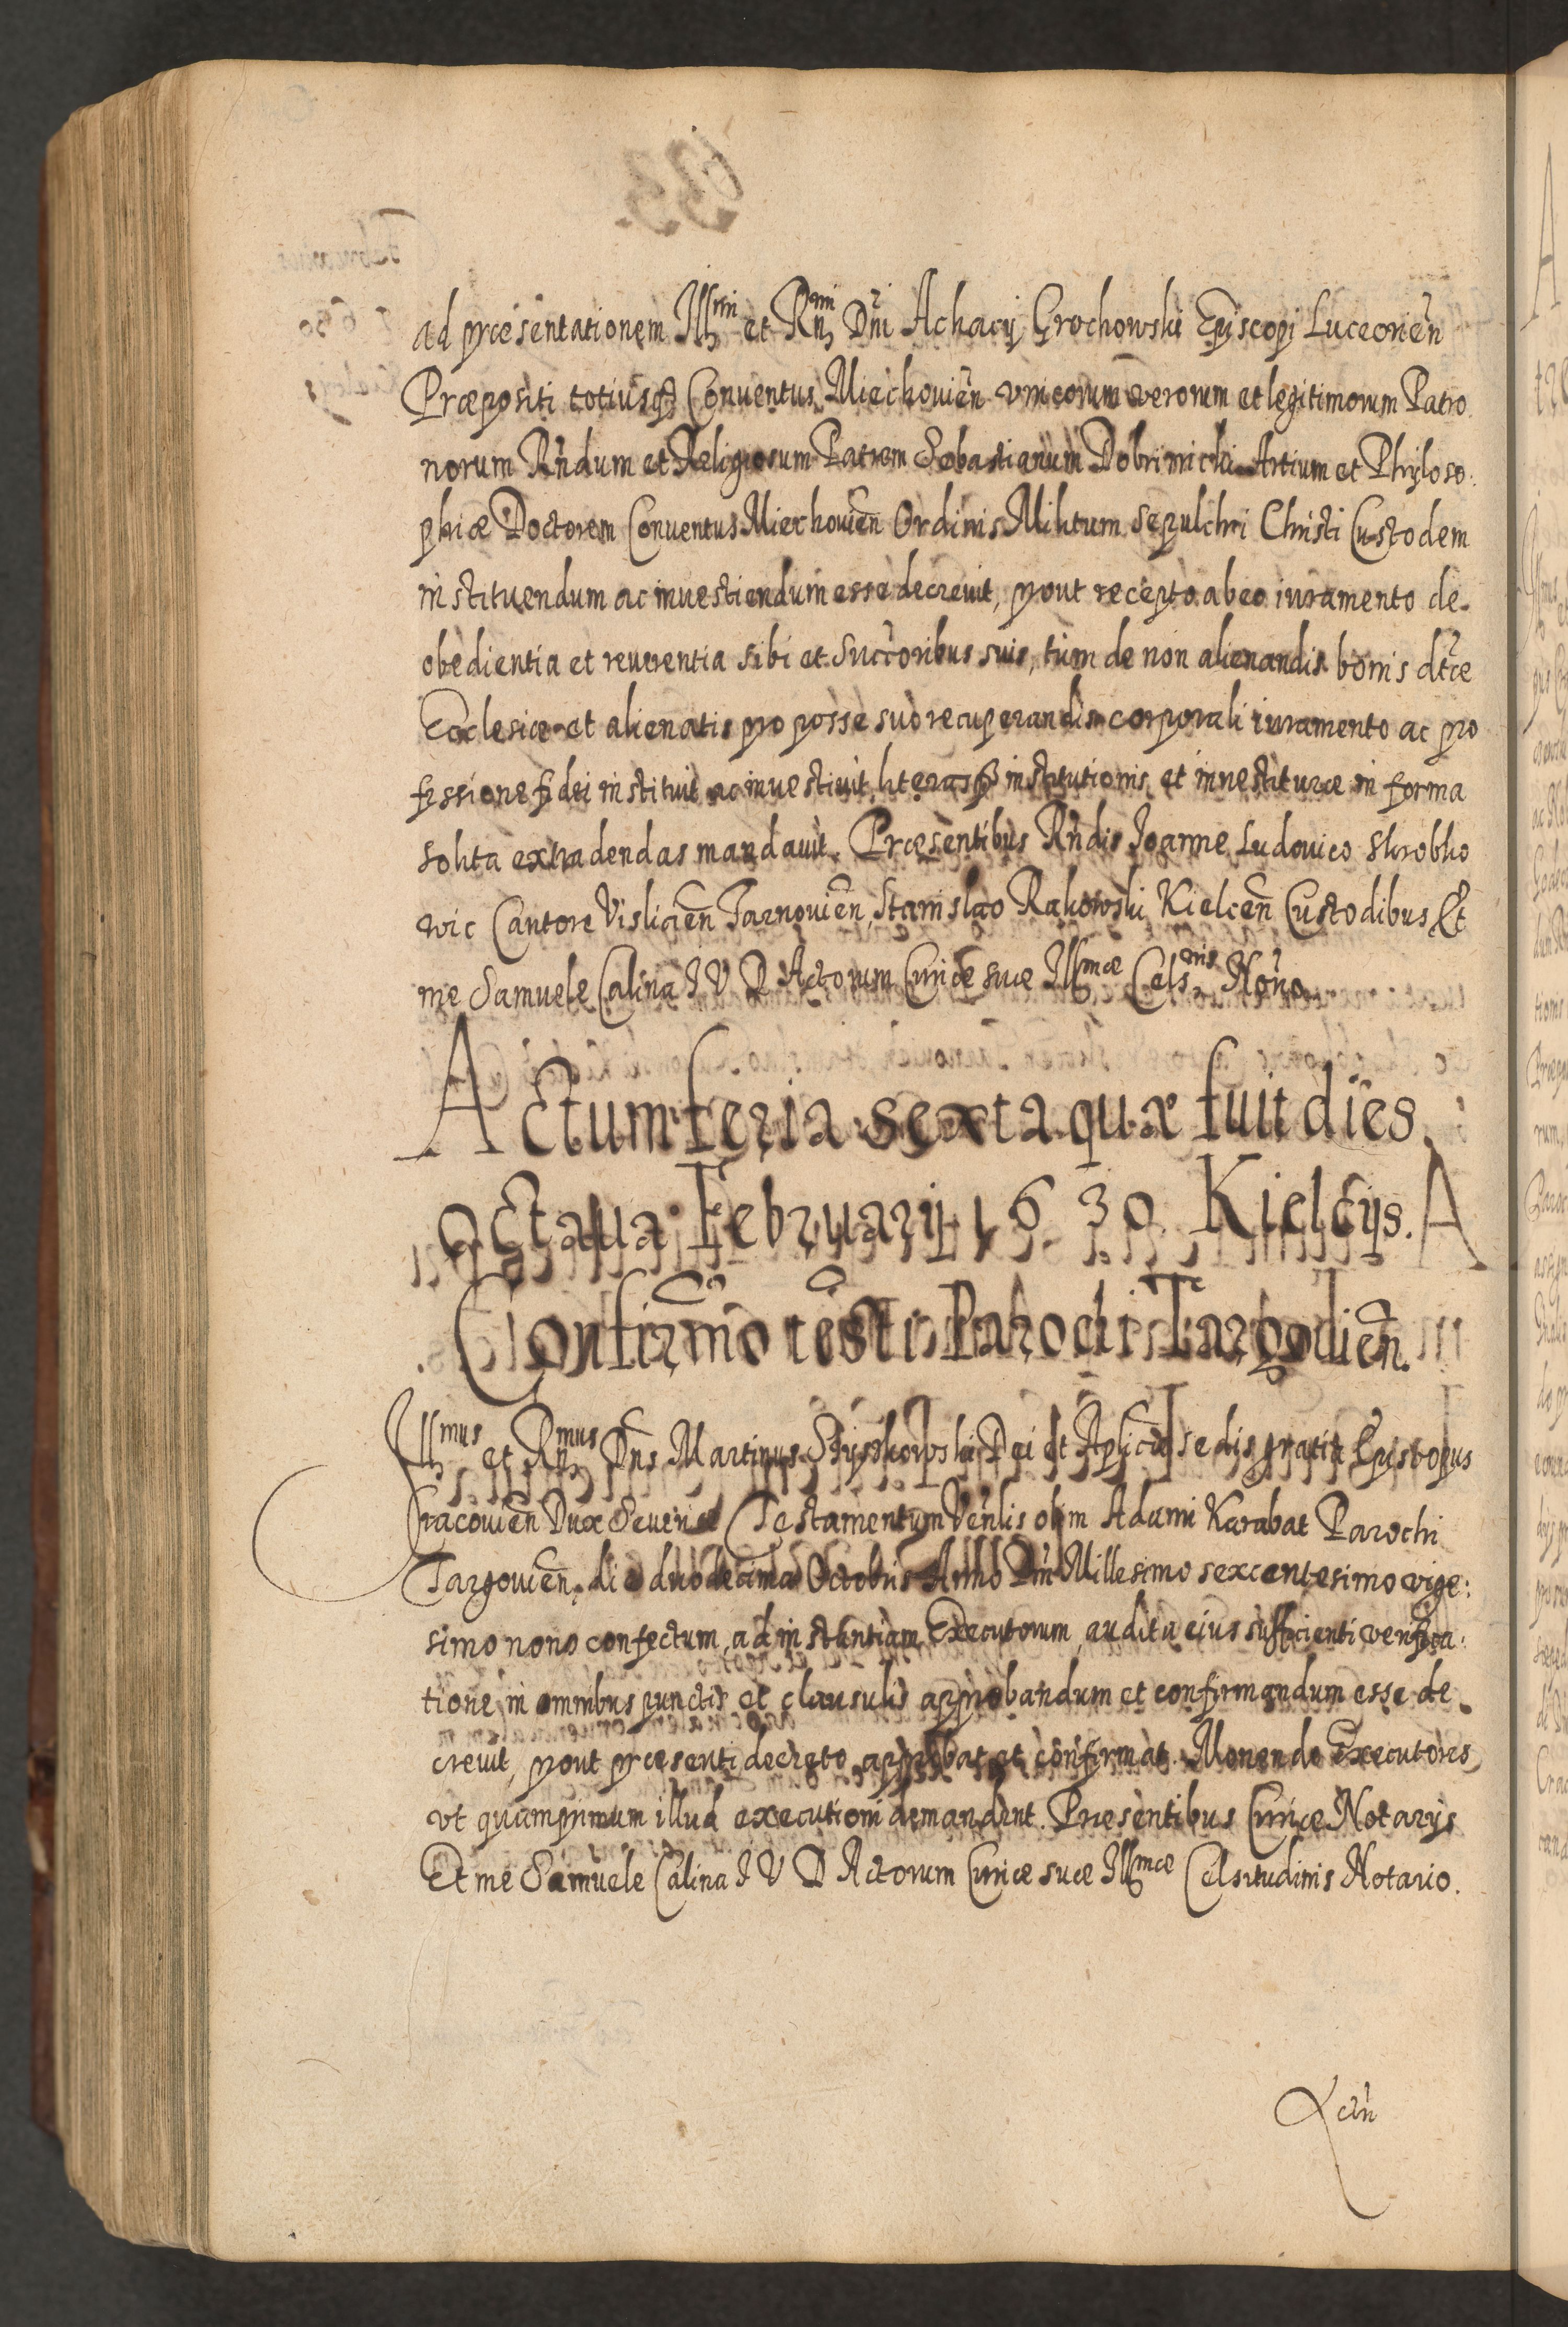 ad præsentationem Illmi et Rmi Dni Achacij Grochowski Episcopi Luceorien
Præpositi totiusq Conventus Miechovien vnicorum verorum et legitimorum Patro
norum Rndum et Religiosum Patrem Sebastianum Dobrimicki Artium et Phyloso:
phiæ Doctorem Conventus Miechovien Ordinis Militum Sepulchri Christi Custodem
instituendum ac investiendum esse decrevit, prout recepto ab eo iuramento de
obedientia et reuerentia sibi et Succoribus suis, tum de non alienandis bonis dtæ
Ecclesiæ et alienatis pro posse suo recuperandis corporali iuramento ac pro
fessione fidei instituit ac inuestiuit literasq institutionis et inuestituræ in forma
solita extradendas mandauit. Præsentibus Rndis Joanne Ludovico Skrobko
wic Cantore Vislicien Tarnouien, Stanislao Rakowski Kielcen Custodibus Et
me Samuele Calina I V D Actorum Curiæ suæ Illmæ Celsnis Notrio.
Actum feria sexta quæ fuit dies
octaua Februarij 1630 Kielcijs. A
Confirmo testi Parochi Targovien.
Illmus et Rmus Dns Martinus Szyszkowski Dei et Aplicæ sedis gratia Episcopus
Cracouien Dux Seueriæ Testamentum Venlis olim Adami Karabat Parochi
Targouien, die duodecima Octobris Anno Dni Millesimo sexcentesimo vige:
simo nono confectum, ad instantiam Executorum, audita eius sufficienti verifica:
tione, in omnibus punctis et clausulis approbandum et confirmandum esse de
creuit, prout præsenti decreto approbat et confirmat. Monendo Executores,
vt quamprimum illud executioni demandent. Præsentibus Curiæ Notarijs
Et me Samuele Calina I V D Actorum Curiæ suæ Illmæ Celsitudinis Notario.